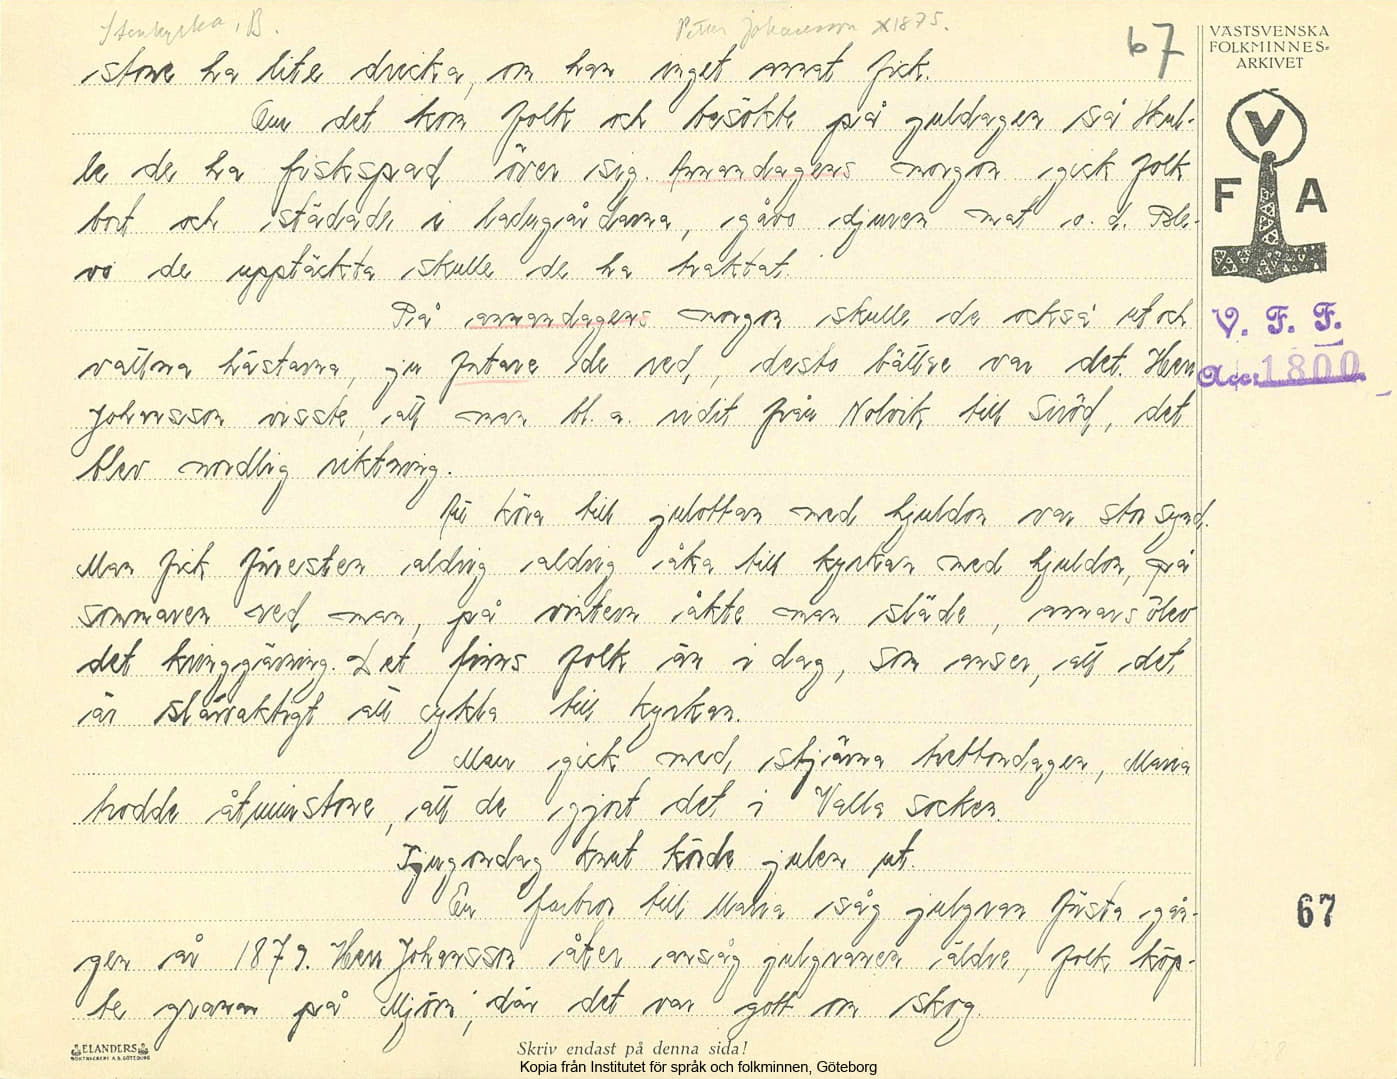 Stenkyrka, B.
Petrus Johansson *1875.
67
VÄSTSVENSKA
FOLKMINNES-
ARKIVET
V
F A
V. F. F.
Acc: 1800
stone ha lite dricka, om han inget annat fick.
Om det kom folk och besökte på juldagen så skul-
le de ha fiskspad över sig. Annandagens morgon gick folk
bort och städade i ladugårdarna, gåvo djuren mat o. d. Ble-
vo de upptäckta skulle de ha traktat.
På annandagens morgon skulle de också ut och
vattna hästarna, ju fortare de red, desto bättre var det. Herr
Johansson visste, att man bl. a. ridit från Nolvik till Siröd, det
blev nordlig riktning.
Att köra till julottan med hjuldon var stor synd.
Man fick förresten aldrig aldrig åka till kyrkan med hjuldon, på
sommaren red man, på vintern åkte man släde, annars blev
det kringgärning. Det finns folk än i dag, som anser, att det
är slarvaktigt att cykla till kyrkan.
Man gick med stjärna trettondagen, Maria
trodde åtminstone, att de gjort det i Valla socken.
Tjugondag Knut körde julen ut.
En farbror till Maria såg julgran första gån-
gen år 1879. Herr Johansson åter ansåg julgranen äldre, folk köp-
te granar på Mjörn, där det var gott om skog.
67
ELANDERS
BOKTRYCKERI A.B. GÖTEBORG
Skriv endast på denna sida!
Kopia från Institutet för språk och folkminnen, Göteborg